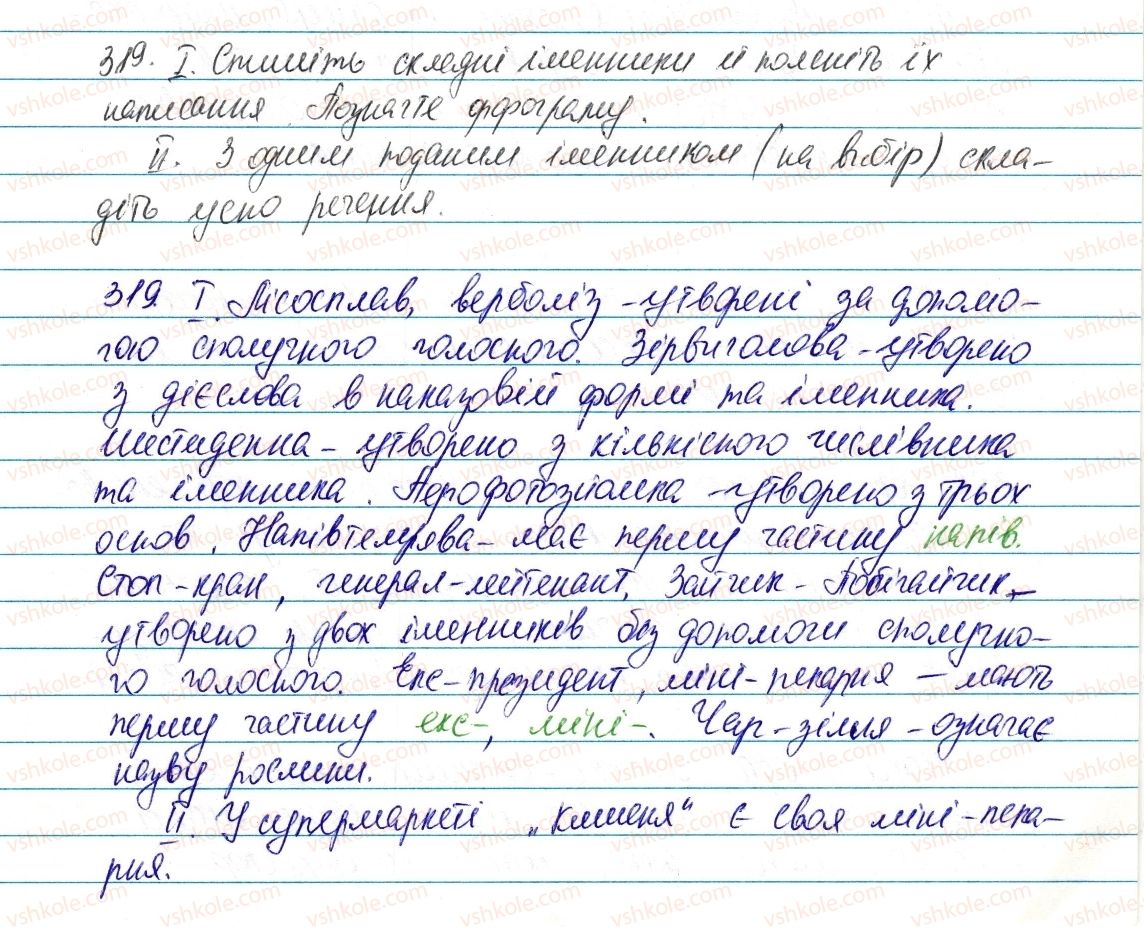 319. I. Спишіть складні іменники й поясніть їх
написання. Позначте орфограму.
II. З одним поданим іменником (на выбір) скла-
діть усно речення.
319 I. Лісосплав, верболіз - утворені за допомо-
гою сполучного голосного. Зірвиголова - утворено
з дієслова в наказовій формі та іменника.
Шестиденка - утворено з кількісного числівника
та іменника. Аерофотозйомка - утворено з трьох
основ. Напівтемрява - має першу частину напів.
Стоп-кран, генерал-лейтенант, Зайчик-Побігайчик -
утворено з двох іменників без допомоги сполучно-
го голосного. Екс-президент, міні-пекарня - мають
першу частину екс-, міні-. Чар-зілля - означає
назву рослини.
II. У супермаркеті „Кишеня" є своя міні-пека-
рня.